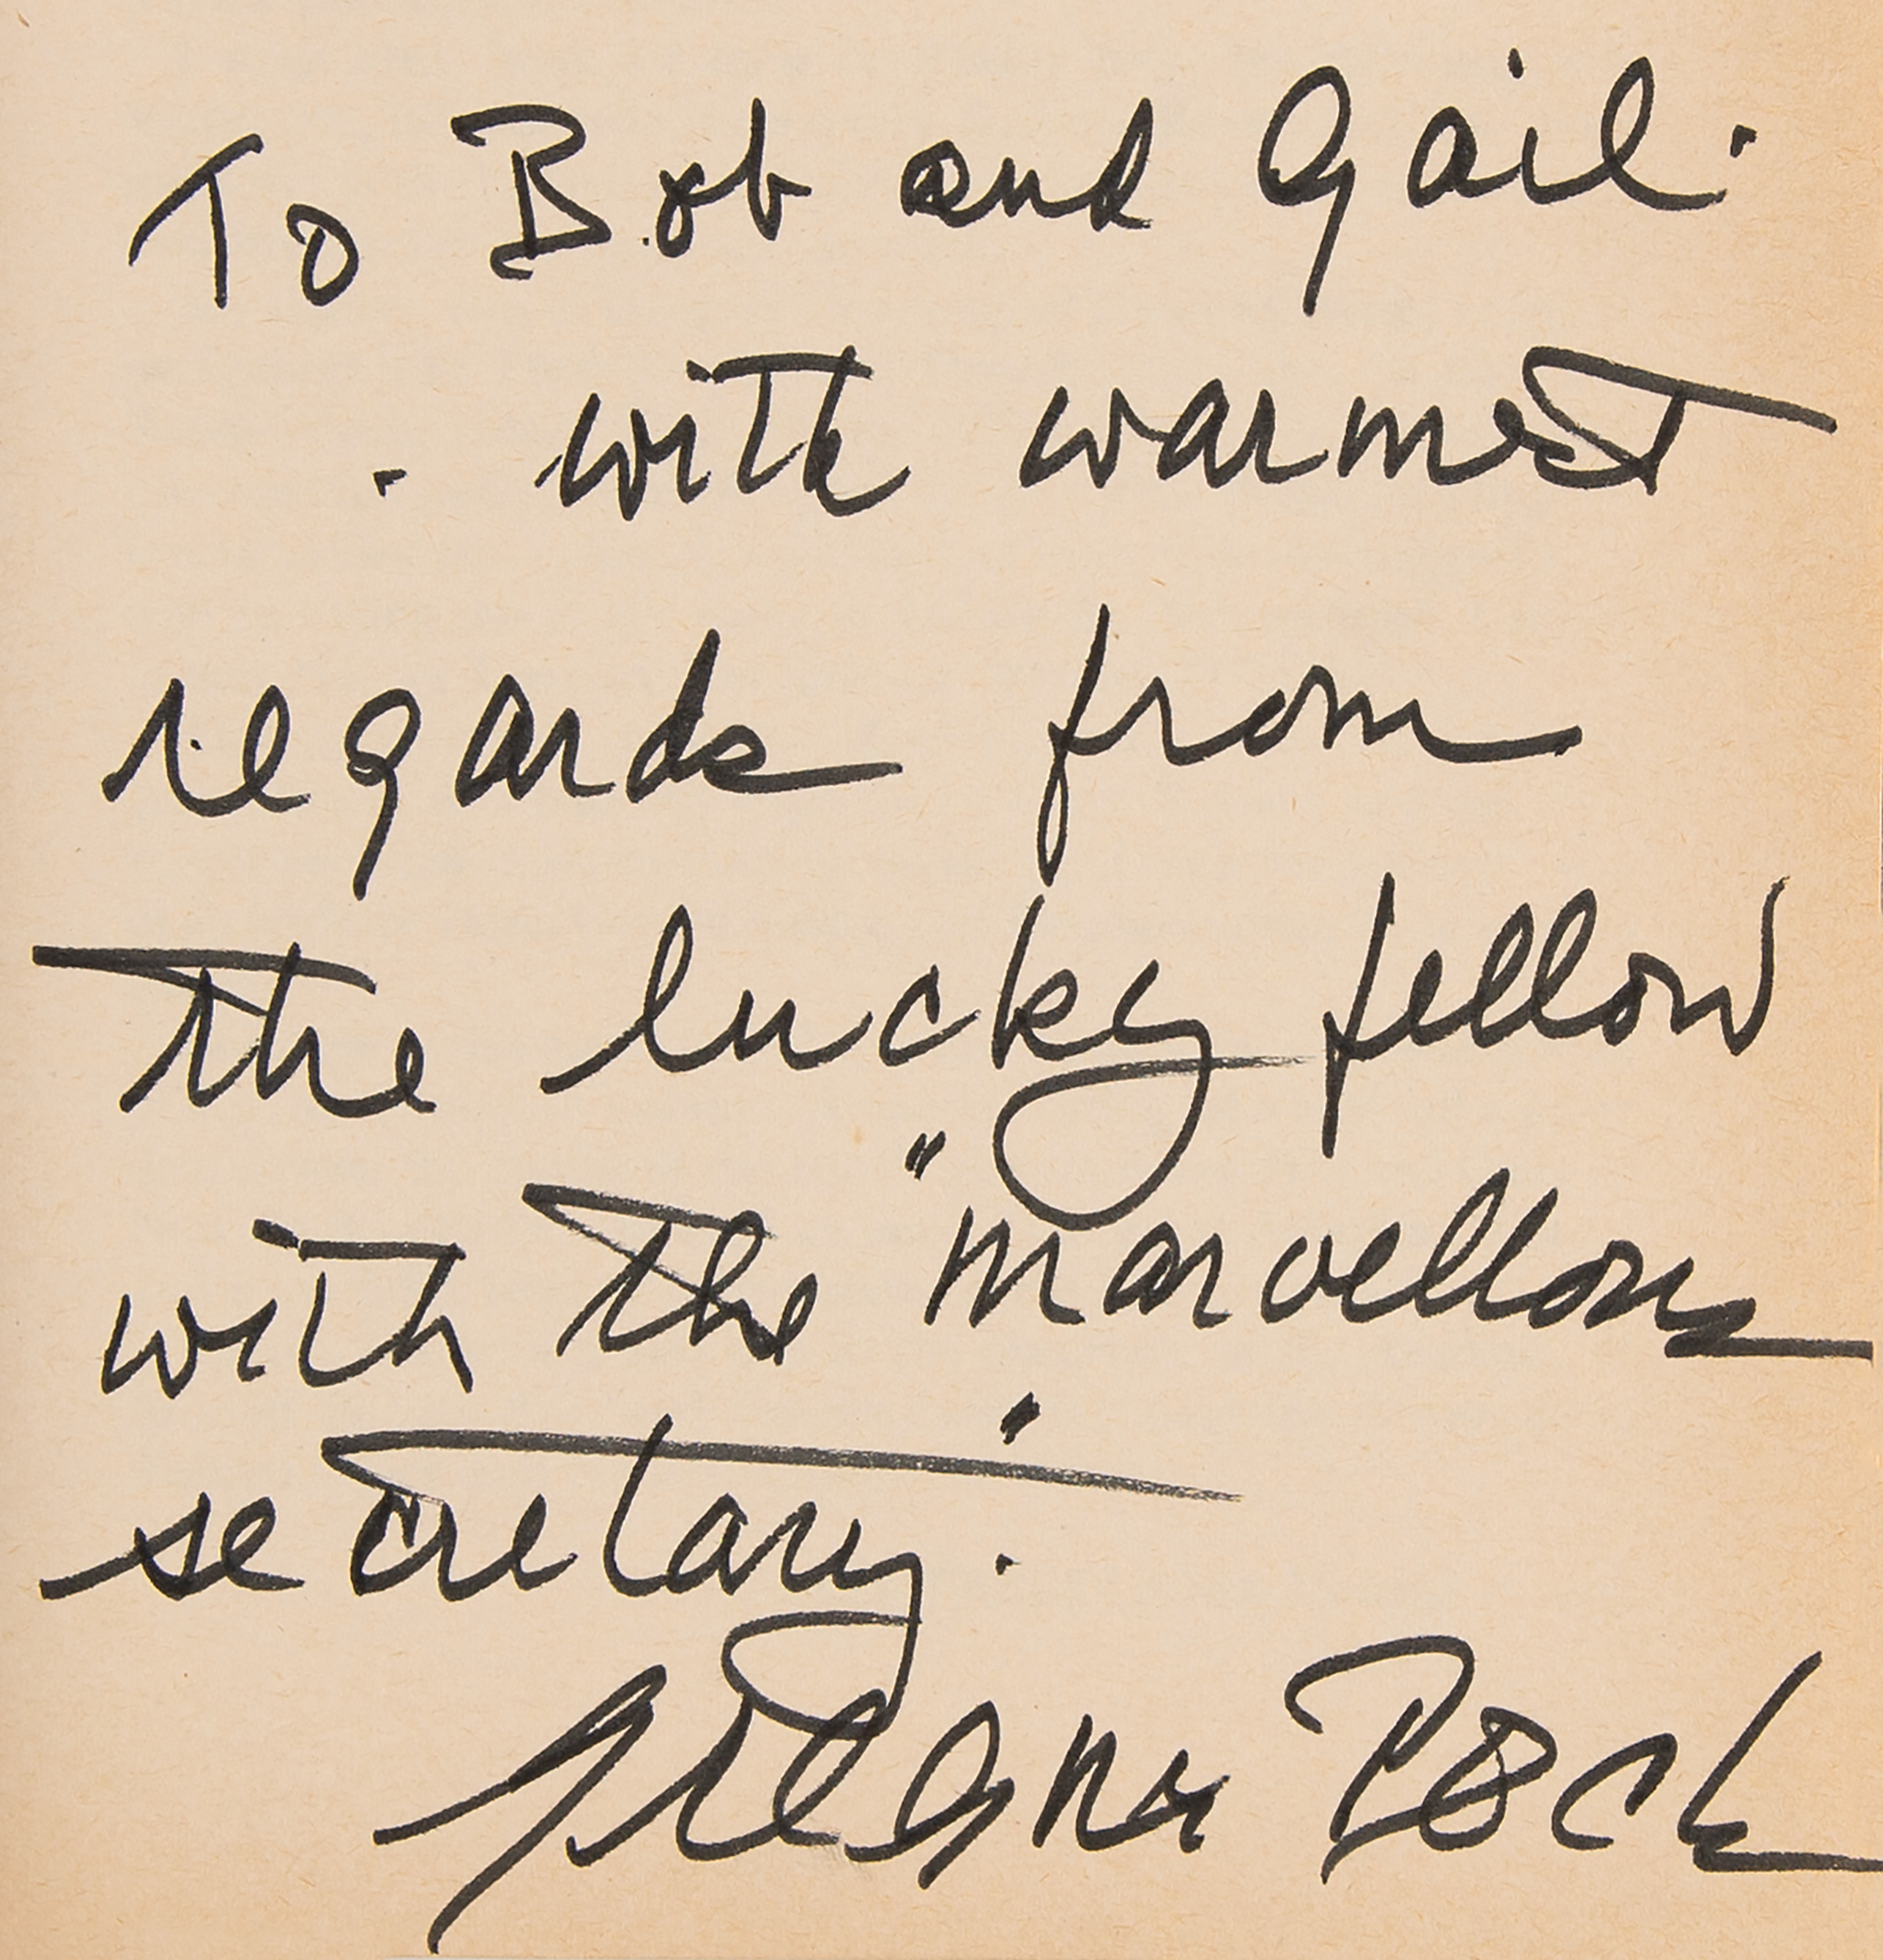 To Bob and Gail:
- with warmest
regards from
the lucky fellow
with the "marvellous
secretary".
Gregory Peck